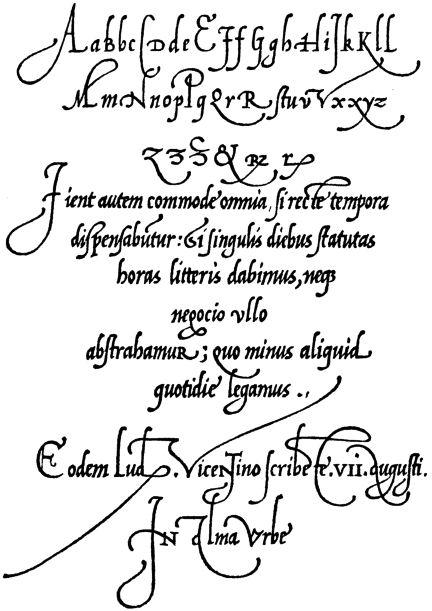 AaBbcCDdeEFfGghHiJkKLl
MmNnoPpQqrRſtuvVxxyz
Fient autem commode omnia, ſi recte tempora
diſpenſabuntur: & ſi singulis diebus ſtatutas
horas litteris dabimus, neqꝫ
negocio vllo
abſtrahamuR; quo minus aliquid
quotidie legamus .,
Eodem Lud. ViceNtino ſcribēte. VII. auguſti.
IN Alma Vrbe